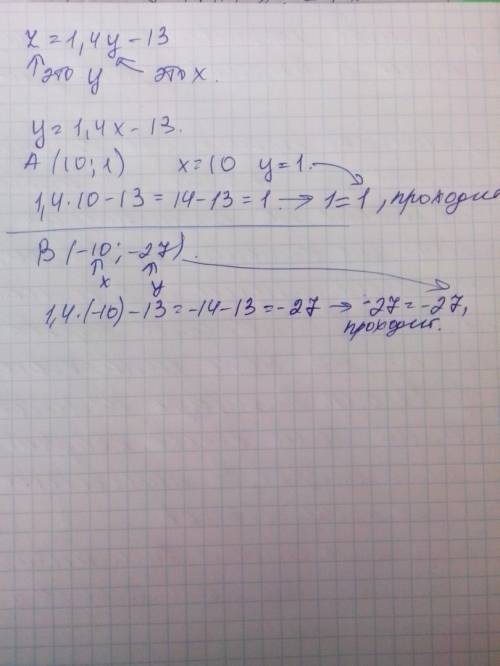 z = 1,4y - 13
↑ это y ↖ это x.
y = 1,4x - 13.
A (10; 1) x = 10 y = 1.
1,4 · 10 - 13 = 14 - 13 = 1 → 1 = 1, проходит
B (-10; -27)
x y
1,4 · (-10) - 13 = -14 - 13 = -27 → -27 = -27,
проходит.